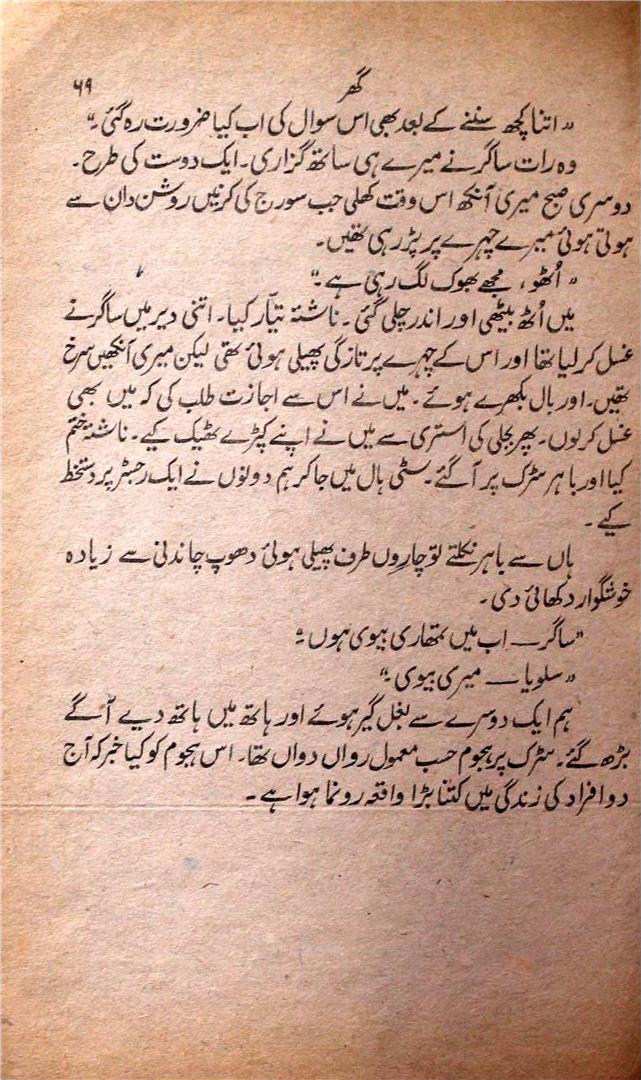 گھر ۶۹
"اتنا کچھ سننے کے بعد بھی اس سوال کی اب کیا ضرورت رہ گئی۔"
وہ رات ساگر نے میرے ہی ساتھ گزاری۔ ایک دوست کی طرح۔
دوسری صبح میری آنکھ اس وقت کھلی جب سورج کی کرنیں روشن دان سے
ہوتی ہوئی میرے چہرے پر پڑ رہی تھیں۔
"اُٹھو، مجھے بھوک لگ رہی ہے۔"
میں اُٹھ بیٹھی اور اندر چلی گئی۔ ناشتہ تیّار کیا۔ اتنی دیر میں ساگر نے
غسل کر لیا تھا اور اس کے چہرے پر تازگی پھیلی ہوئی تھی لیکن میری آنکھیں سرخ
تھیں۔ اور بال بکھرے ہوئے۔ میں نے اس سے اجازت طلب کی کہ میں بھی
غسل کر لوں۔ پھر بجلی کی استری سے میں نے اپنے کپڑے ٹھیک کیے۔ ناشتہ ختم
کیا اور باہر سڑک پر آ گئے۔ سٹی ہال میں جا کر ہم دونوں نے ایک رجسٹر پر دستخط
کیے۔
ہاں سے باہر نکلتے تو چاروں طرف پھیلی ہوئی دھوپ چاندنی سے زیادہ
خوشگوار دکھائی دی۔
"ساگر — اب میں تمھاری بیوی ہوں۔"
"سلویا — میری بیوی۔"
ہم ایک دوسرے سے بغل گیر ہوئے اور ہاتھ میں ہاتھ دیے آگے
بڑھ گئے۔ سڑک پر ہجوم حسب معمول رواں دواں تھا۔ اس ہجوم کو کیا خبر کہ آج
دو افراد کی زندگی میں کتنا بڑا واقعہ رونما ہوا ہے۔